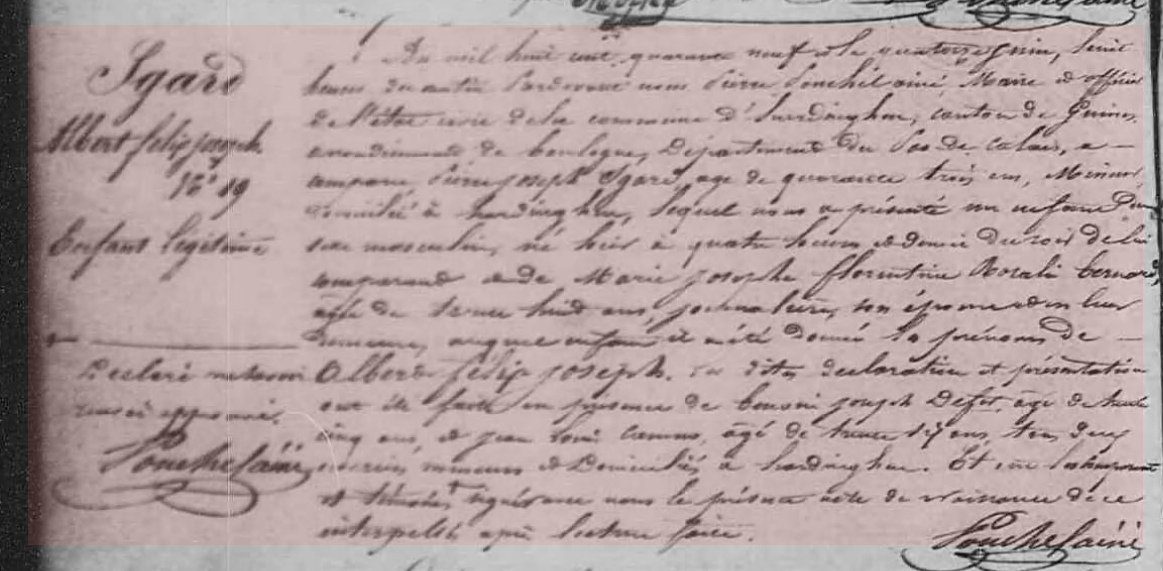 Sgard
Albert félix joseph
N° 19
Enfant légitime
Declaré ne savoir
approuvé.
Pouchel ainé
Du mil huit cent quarante neuf et le quatorze juin, huit
heures du matin Pardevant nous Pierre Pouchel ainé, Maire et officier
de l'état civil de la commune d'hardinghen, canton de Guines,
arrondissement de boulogne, Département du Pas de Calais, a
comparu Pierre joseph Sgard, age de quarante trois ans, Mineur,
domicilié à hardinghen, lequel nous a présenté un enfant Du
sexe masculin, né hier à quatre heures et demie du soir de lui
comparant et de Marie josephe florentine Rosalie bernard,
agée de trente huit ans, journalière, son épouse et en leur
demeure, auquel enfant il a été donné les prénoms de
Albert félix joseph. les dites declaration et présentation
ont été faite en présence de joseph Defer, age de trente
cinq ans, et jean louis, agé de trente dix ans, tous deux
mineurs et Domiciliés a hardinghen. Et ont le comparant
et témoins signé avec nous le présent acte de naissance de ce
interpellé après lecture faite.
Pouchel ainé